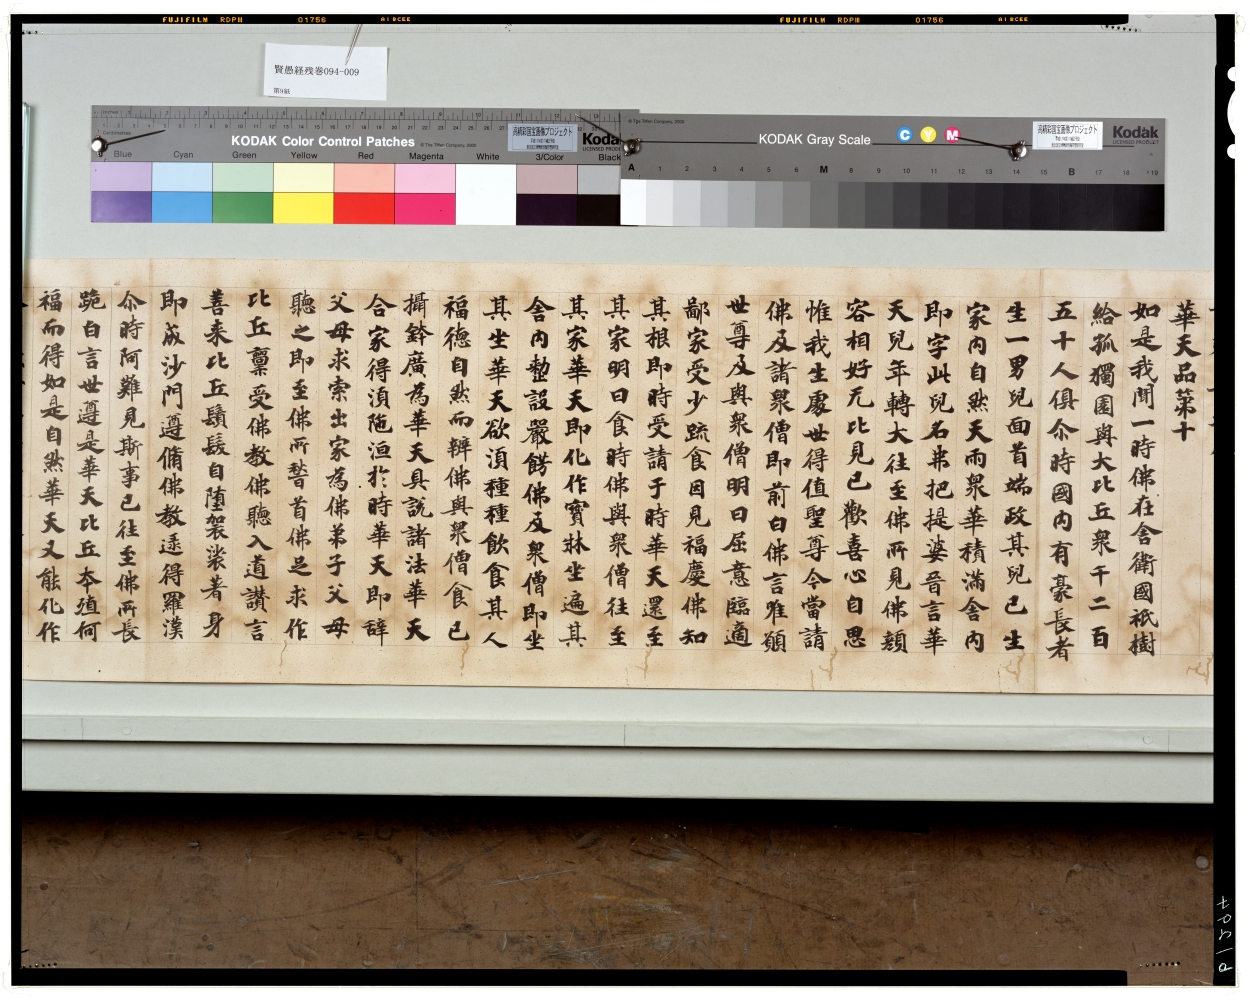 FUJIFILM RDPIII 01756
FUJIFILM RDPIII 01756
賢愚経残巻094-009
第9紙
KODAK Color Control Patches
© The Tiffen Company, 2000
高精彩国宝画像プロジェクト
Blue Cyan Green Yellow Red Magenta White 3/Color Black
KODAK Gray Scale
C Y M
高精彩国宝画像プロジェクト
Kodak
LICENSED PRODUCT
A 1 2 3 4 5 6 M 8 9 10 11 12 13 14 15 B 17 18 19
華天品第十
如是我聞一時佛在舍衛國祇樹
給孤獨園與大比丘衆千二百
五十人俱尒時國内有豪長者
生一男兒面首端政其兒已生
家内自然天雨衆華積滿舍内
即字此兒名弗把提婆晉言華
天兒年轉大往至佛所見佛顏
容相好无比見已歡喜心自思
惟我生處世得值聖尊今當請
佛及諸衆僧即前白佛言唯願
世尊及與衆僧明日屈意臨適
鄙家受少蔬食因見福慶佛知
其根即時受請于時華天還至
其家明日食時佛與衆僧往至
其家華天即化作寶牀坐遍其
舍内整設嚴餝佛及衆僧即坐
其坐華天欲湏種種飲食其人
福德自然而辦佛與衆僧食已
攝鉢廣為華天具說諸法華天
合家得湏陁洹於時華天即辞
父母求索出家為佛弟子父母
聽之即至佛所稽首佛足求作
比丘稟受佛教佛聽入道讃言
善来比丘鬚髮自堕袈裟著身
即成沙門遵脩佛教逮得羅漢
尒時阿難見斯事已往至佛所長
跪白言世尊是華天比丘本殖何
福而得如是自然華天又能化作